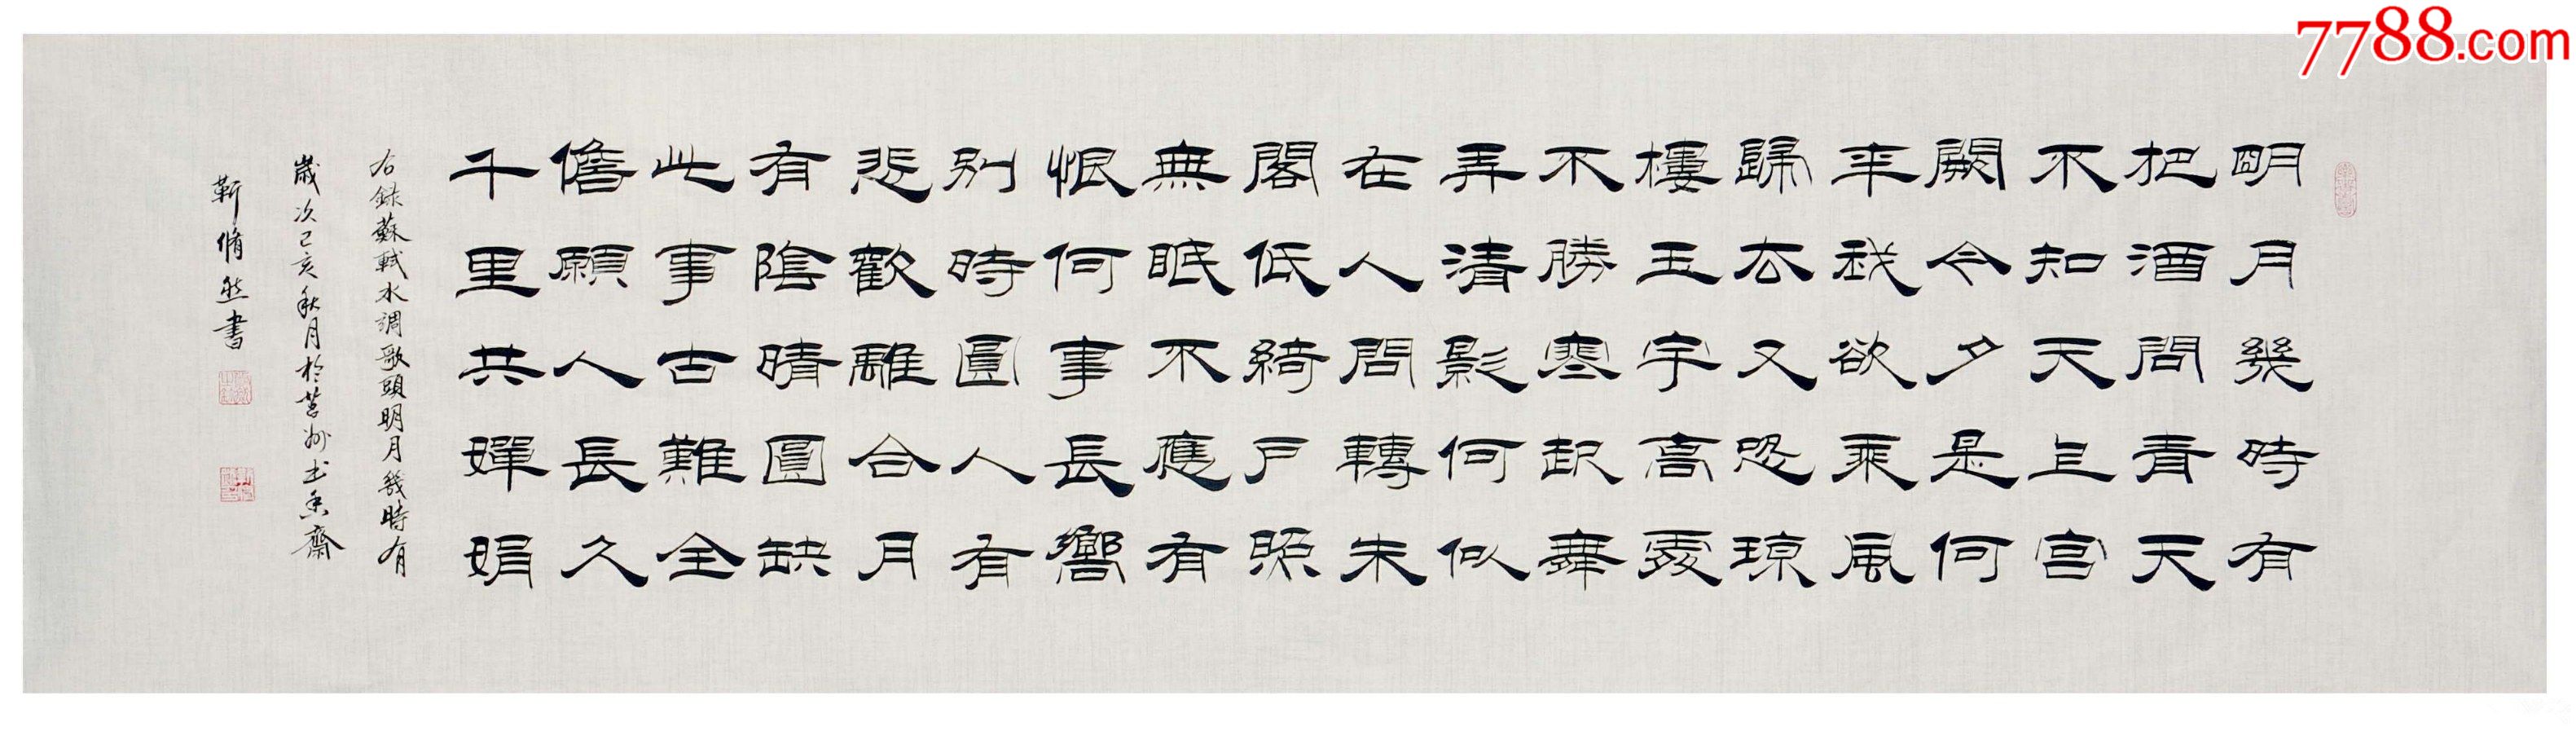 明月幾時有
把酒問青天
不知天上宮
闕今夕是何
年我欲乘風
歸去又恐琼
樓玉宇高處
不勝寒起舞
弄清影何似
在人間轉朱
閣低綺戶照
無眠不應有
恨何事長嚮
別時圓人有
悲歡離合月
有陰晴圓缺
此事古難全
儋願人長久
千里共嬋娟
右錄蘇軾水調歌頭明月幾時有
歲次己亥秋月於莒州書香齋
靳脩然書
7788.com